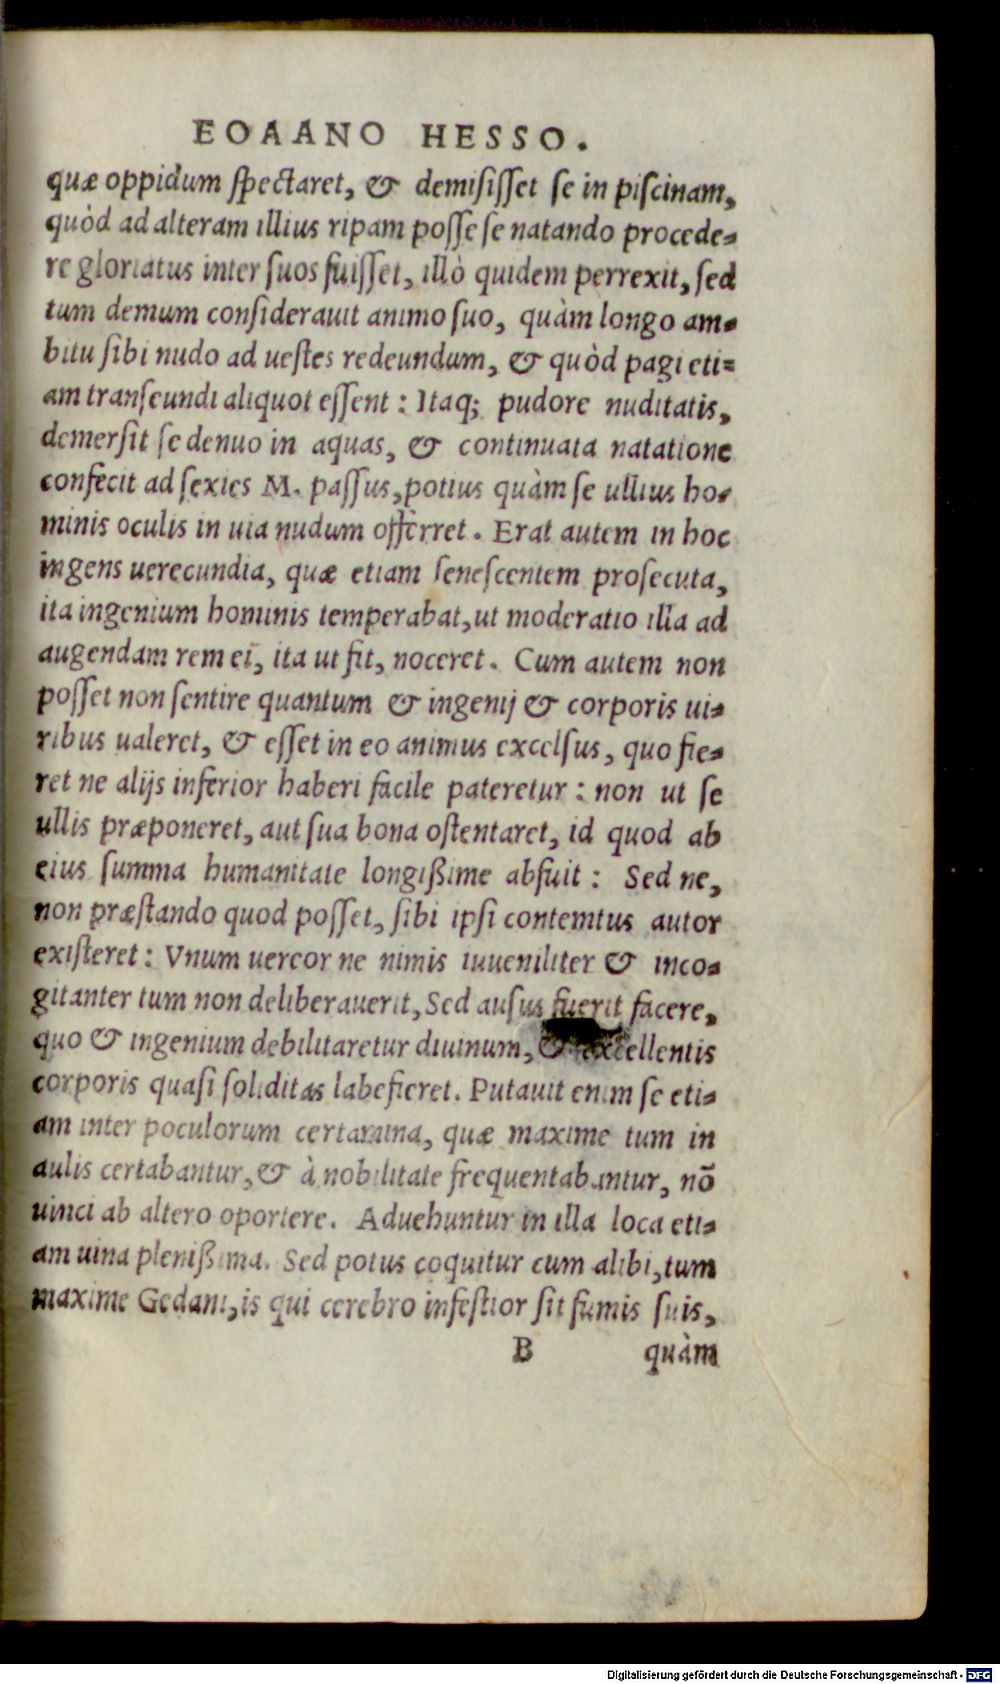 EOAANO HESSO.
quæ oppidum spectaret, & demisisset se in piscinam,
quòd ad alteram illius ripam posse se natando procede=
re gloriatus inter suos fuisset, illò quidem perrexit, sed
tum demum considerauit animo suo, quàm longo am=
bitu sibi nudo ad uestes redeundum, & quòd pagi eti=
am transeundi aliquot essent : Itaq; pudore nuditatis,
demersit se denuo in aquas, & continuata natatione
confecit ad sexies M. passus, potius quàm se ullius ho=
minis oculis in uia nudum offerret. Erat autem in hoc
ingens uerecundia, quæ etiam senescentem prosecuta,
ita ingenium hominis temperabat, ut moderatio illa ad
augendam rem ei, ita ut fit, noceret. Cum autem non
posset non sentire quantum & ingenij & corporis ui=
ribus ualeret, & esset in eo animus excelsus, quo fie=
ret ne alijs inferior haberi facile pateretur : non ut se
ullis præponeret, aut sua bona ostentaret, id quod ab
eius summa humanitate longißime abfuit : Sed ne,
non præstando quod posset, sibi ipsi contemtus autor
existeret : Vnum uercor ne nimis iuueniliter & inco=
gitanter tum non deliberauerit, Sed ausus fuerit facere,
quo & ingenium debilitaretur diuinum, & excellentis
corporis quasi soliditas labefieret. Putauit enim se eti=
am inter poculorum certamina, quæ maxime tum in
aulis certabantur, & à nobilitate frequentabantur, nō
uinci ab altero oportere. Aduehuntur in illa loca eti=
am uina plenißima. Sed potus coquitur cum alibi, tum
maxime Gedani, is qui cerebro infestior sit fumis suis,
B quàm
Digitalisierung gefördert durch die Deutsche Forschungsgemeinschaft - DFG